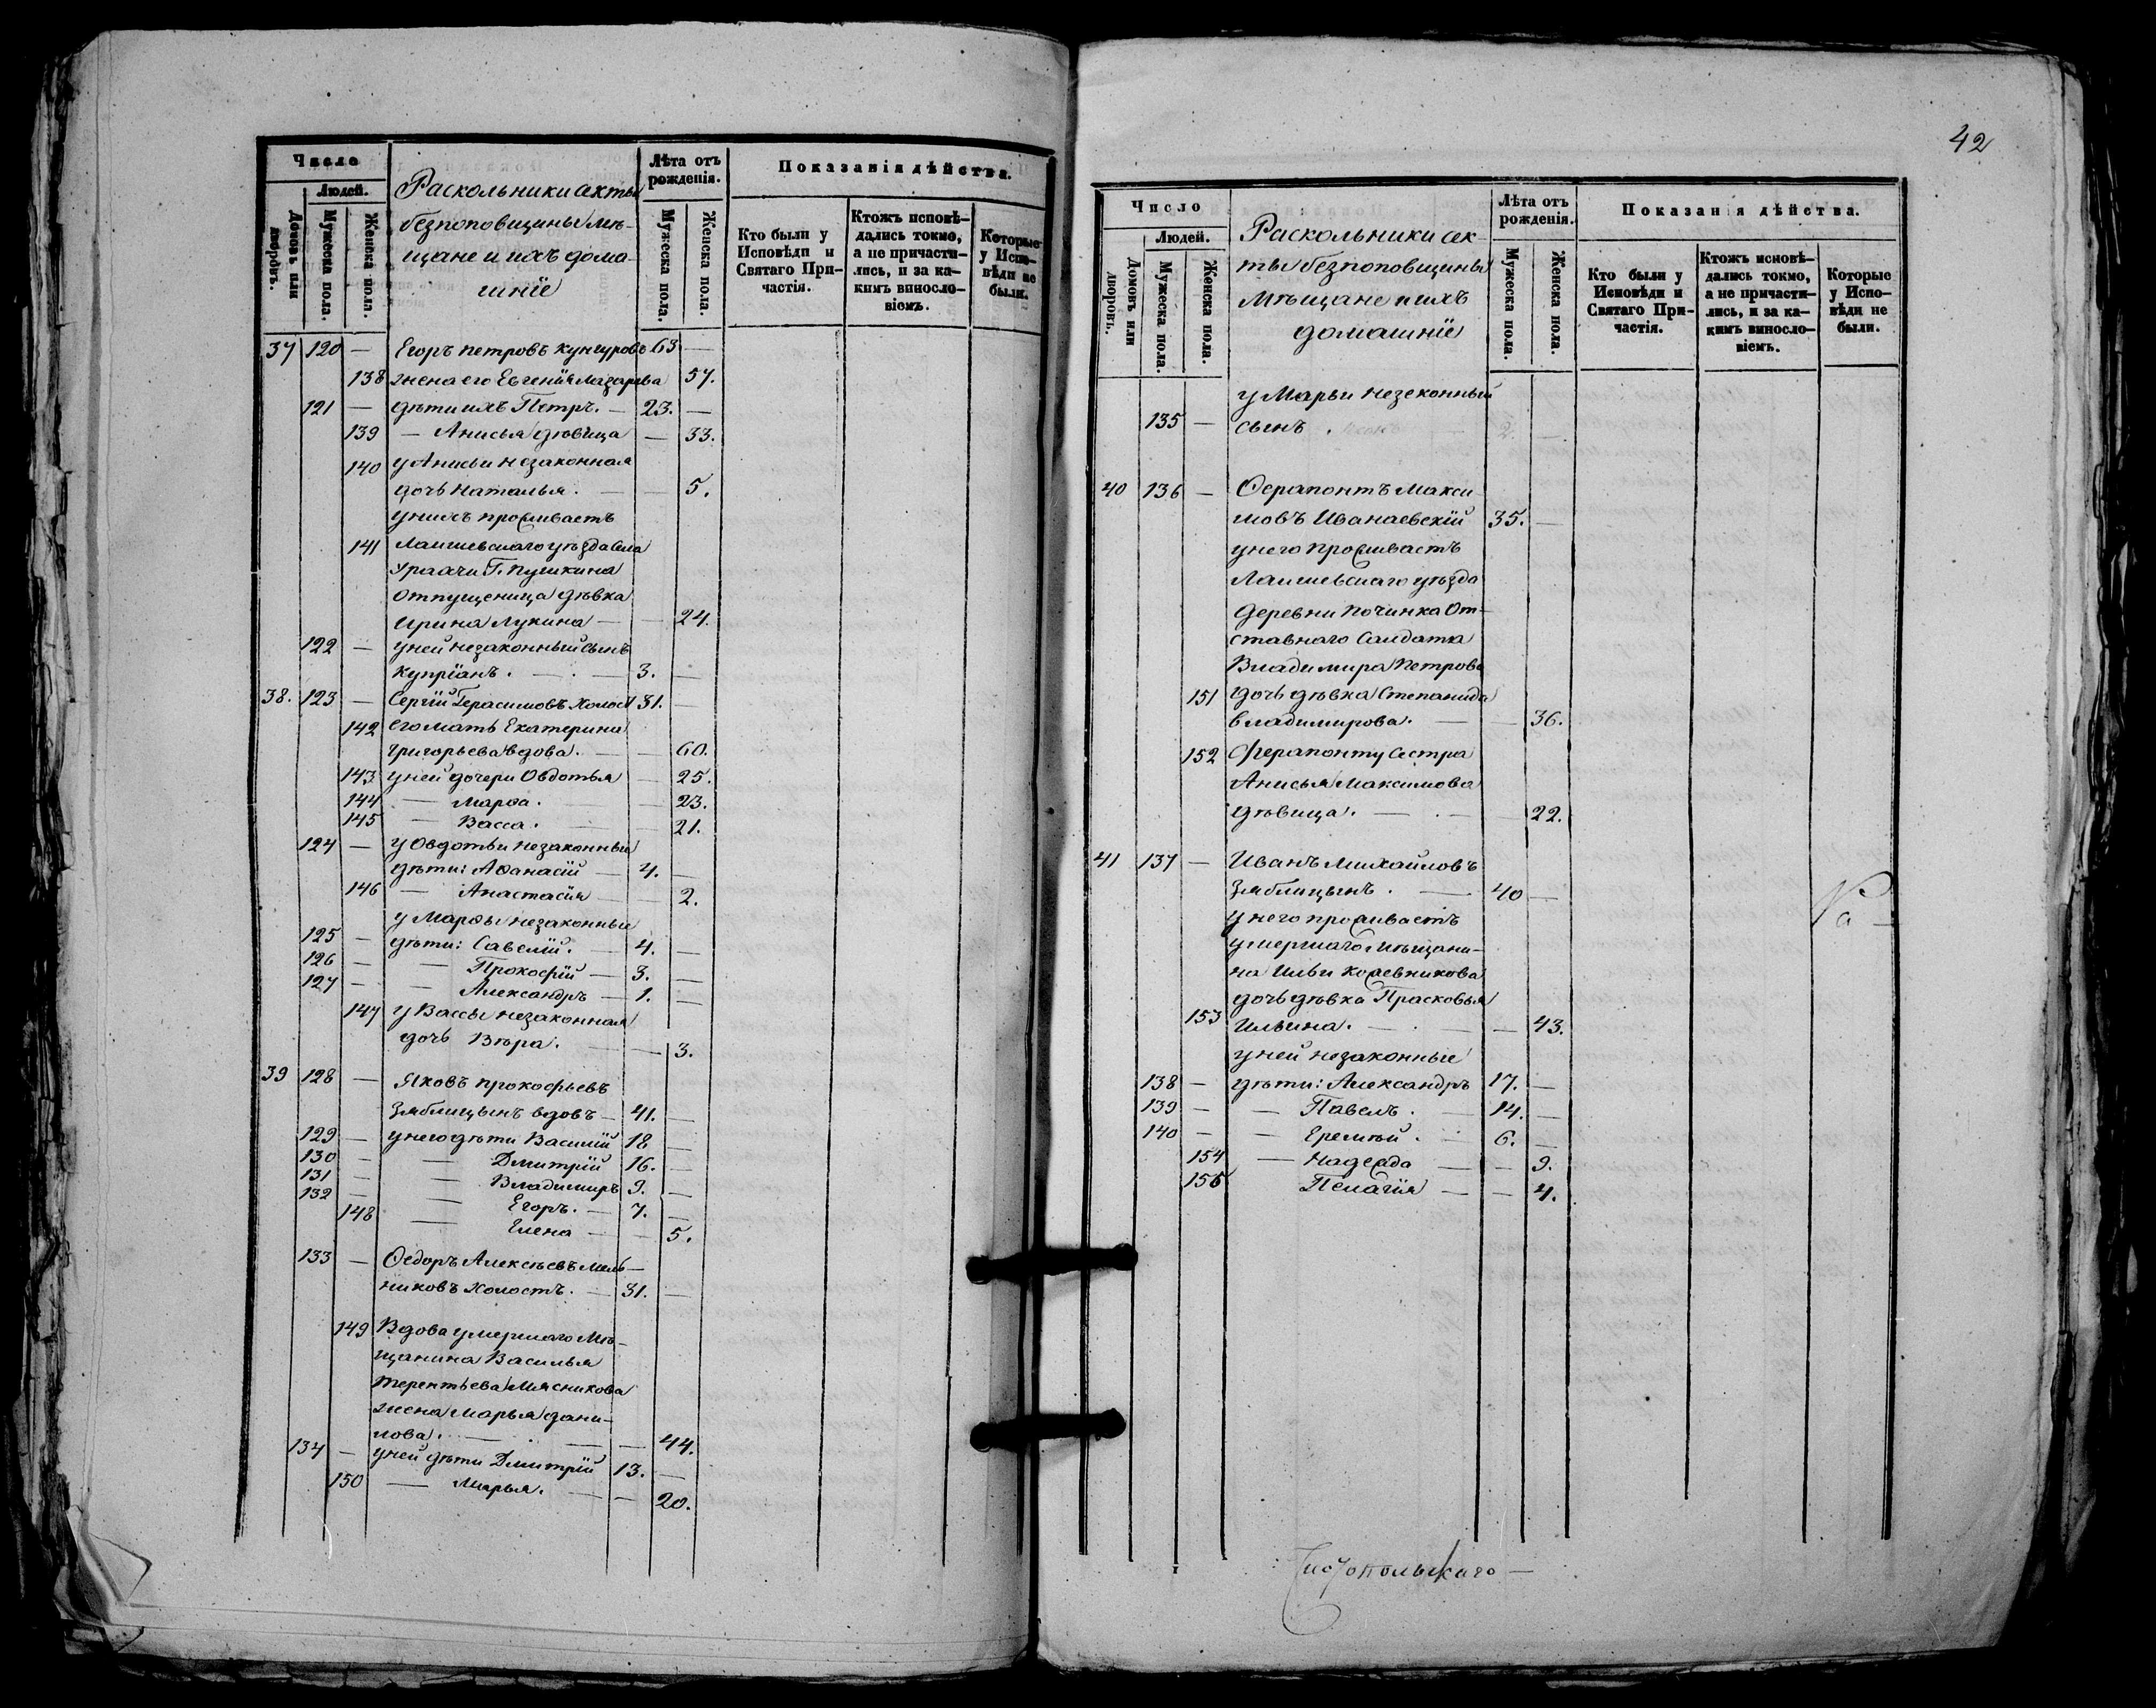 Число
Людей.
Домовъ или дворовъ.
Мужеска пола.
Женска пола.
Раскольники секты
безпоповщины мѣ-
щане и ихъ дома-
шнїе
Лѣта отъ рожденія.
Мужеска пола.
Женска пола.
Показанія дѣйства.
Кто были у Исповѣди и Святаго При-частія.
Ктожъ исповѣ-дались токмо, а не причасти-лись, и за ка-кимъ винносло-віемъ.
Которые у Испо-вѣди не были.
37 120 — Егоръ Петровъ Кунгуровъ 63 —
138 жена его Евгенїя Лазарева 57.
121 — дѣти ихъ Петръ. — 23. —
139 — Анисья дѣвица — 33.
140 у Анисьи незаконная
дочь Наталья. — — 5.
у нихъ проживаетъ
141 Лаишевскаго уѣзда села
Г. Пушкина
отпущеница дѣвка
Ирина Лукина — — 24.
122 — у ней незаконный сынъ
Купріанъ. — . — 3. —
38. 123 — Сергїй Герасимовъ холост 31. —
142 его мать Екатерина
Григорьева вдова. — — 60.
143 у ней дочери Овдотья — 25.
144 — Марѳа. — 23.
145 — Васса. — — 21.
124 — у Овдотьи незаконные
дѣти: Аѳанасїй — 4. —
146 — Анастасїя — — 2.
у Марѳы незаконные
125 — дѣти: Савелїй. — 4. —
126 — — Прокофїй — 3. —
127 — — Александръ — 1. —
147 у Вассы незаконная
дочь Вѣра. — — 3.
39 128 — Яковъ Прокофьевъ
Зяблицынъ вдовъ — 41. —
129 — у него дѣти Василїй 18 —
130 — — Дмитрїй 16. —
131 — — Владимиръ 9. —
132 — — Егоръ. — 7. —
148 — Елена — — 5.
133 — Ѳедоръ Алексѣевъ Мель-
никовъ холостъ. — 31. —
149 Вдова умершаго мѣ-
щанина Василья
Терентьева Мясникова
жена Марья Дани-
лова. — . — — 44.
134 — у ней дѣти Дмитрїй 13. —
150 — Марья. — — 20.
42
Число
Людей.
Домовъ или дворовъ.
Мужеска пола.
Женска пола.
Раскольники сек-
ты безпоповщины
мѣщане и ихъ
домашнїе
Лѣта отъ рожденія.
Мужеска пола.
Женска пола.
Показанія дѣйства.
Кто были у Исповѣди и Святаго При-частія.
Ктожъ исповѣ-дались токмо, а не причасти-лись, и за ка-кимъ винносло-віемъ.
Которые у Испо-вѣди не были.
у Марьи незаконный
135 — сынъ . — 2. —
40 136 — Ѳерапонтъ Макси-
мовъ Иванаевскїй 35. —
у него проживаетъ
Лаишевскаго уѣзда
деревни Починка от-
ставнаго салдата
Владимира Петрова
151 дочь дѣвка Степанида
Владимирова. — — 36.
152 Ферапонту сестра
Анисья Максимова
дѣвица. — . — — 22.
41 137 — Иванъ Михайловъ
Зяблицынъ. — 40 —
у него проживаетъ
умершаго мѣщани-
на Ильи Кожевникова
дочь дѣвка Прасковья
153 Ильина. — . — — 43.
у ней незаконные
138 — дѣти: Александръ 17. —
139 — — Павелъ. — 14. —
140 — — Еремѣй. — 6. —
154 — Надежда — — 9.
155 Пелагїя — — 4.
Чистопольскаго —